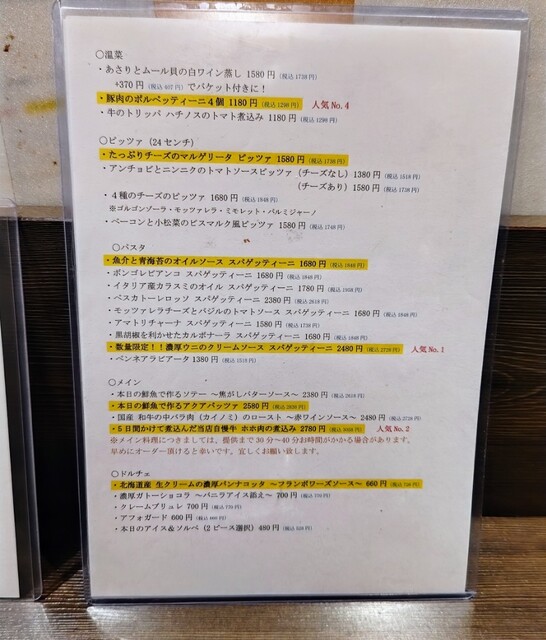 ○温菜
・あさりとムール貝の白ワイン蒸し 1580円(税込1738円)
+370円(税込407円)でバケット付きに!
・豚肉のポルペッティーニ4個 1180円(税込1298円) 人気No.4
・牛のトリッパ ハチノスのトマト煮込み 1180円(税込1298円)
○ピッツァ(24センチ)
・たっぷりチーズのマルゲリータ ピッツァ 1580円(税込1738円)
・アンチョビとニンニクのトマトソースピッツァ (チーズなし)1380円(税込1518円)
(チーズあり)1580円(税込1738円)
・4種のチーズのピッツァ 1680円(税込1848円)
※ゴルゴンゾーラ・モッツァレラ・ミモレット・パルミジャーノ
・ベーコンと小松菜のビスマルク風ピッツァ 1580円(税込1748円)
○パスタ
・魚介と青海苔のオイルソース スパゲッティーニ 1680円(税込1848円)
・ボンゴレビアンコ スパゲッティーニ 1680円(税込1848円)
・イタリア産カラスミのオイル スパゲッティーニ 1780円(税込1958円)
・ペスカトーレロッソ スパゲッティーニ 2380円(税込2618円)
・モッツァレラチーズとバジルのトマトソース スパゲッティーニ 1680円(税込1848円)
・アマトリチャーナ スパゲッティーニ 1580円(税込1738円)
・黒胡椒を利かせたカルボナーラ スパゲッティーニ 1680円(税込1848円)
・数量限定!!濃厚ウニのクリームソース スパゲッティーニ 2480円(税込2728円) 人気No.1
・ペンネアラビアータ 1380円(税込1518円)
○メイン
・本日の鮮魚で作るソテー ～焦がしバターソース～ 2380円(税込2618円)
・本日の鮮魚で作るアクアパッツァ 2580円(税込2838円)
・国産 和牛の中バラ肉(カイノミ)のロースト ～赤ワインソース～ 2480円(税込2728円)
・5日間かけて煮込んだ当店自慢牛 ホホ肉の煮込み 2780円(税込3058円) 人気No.2
※メイン料理につきましては、提供まで30分～40分お時間がかかる場合があります。
早めにオーダー頂けると幸いです。宜しくお願い致します。
○ドルチェ
・北海道産 生クリームの濃厚パンナコッタ ～フランボワーズソース～ 660円(税込726円)
・濃厚ガトーショコラ ～バニラアイス添え～ 700円(税込770円)
・クレームブリュレ 700円(税込770円)
・アフォガード 600円(税込660円)
・本日のアイス&ソルベ(2ピース選択)480円(税込528円)